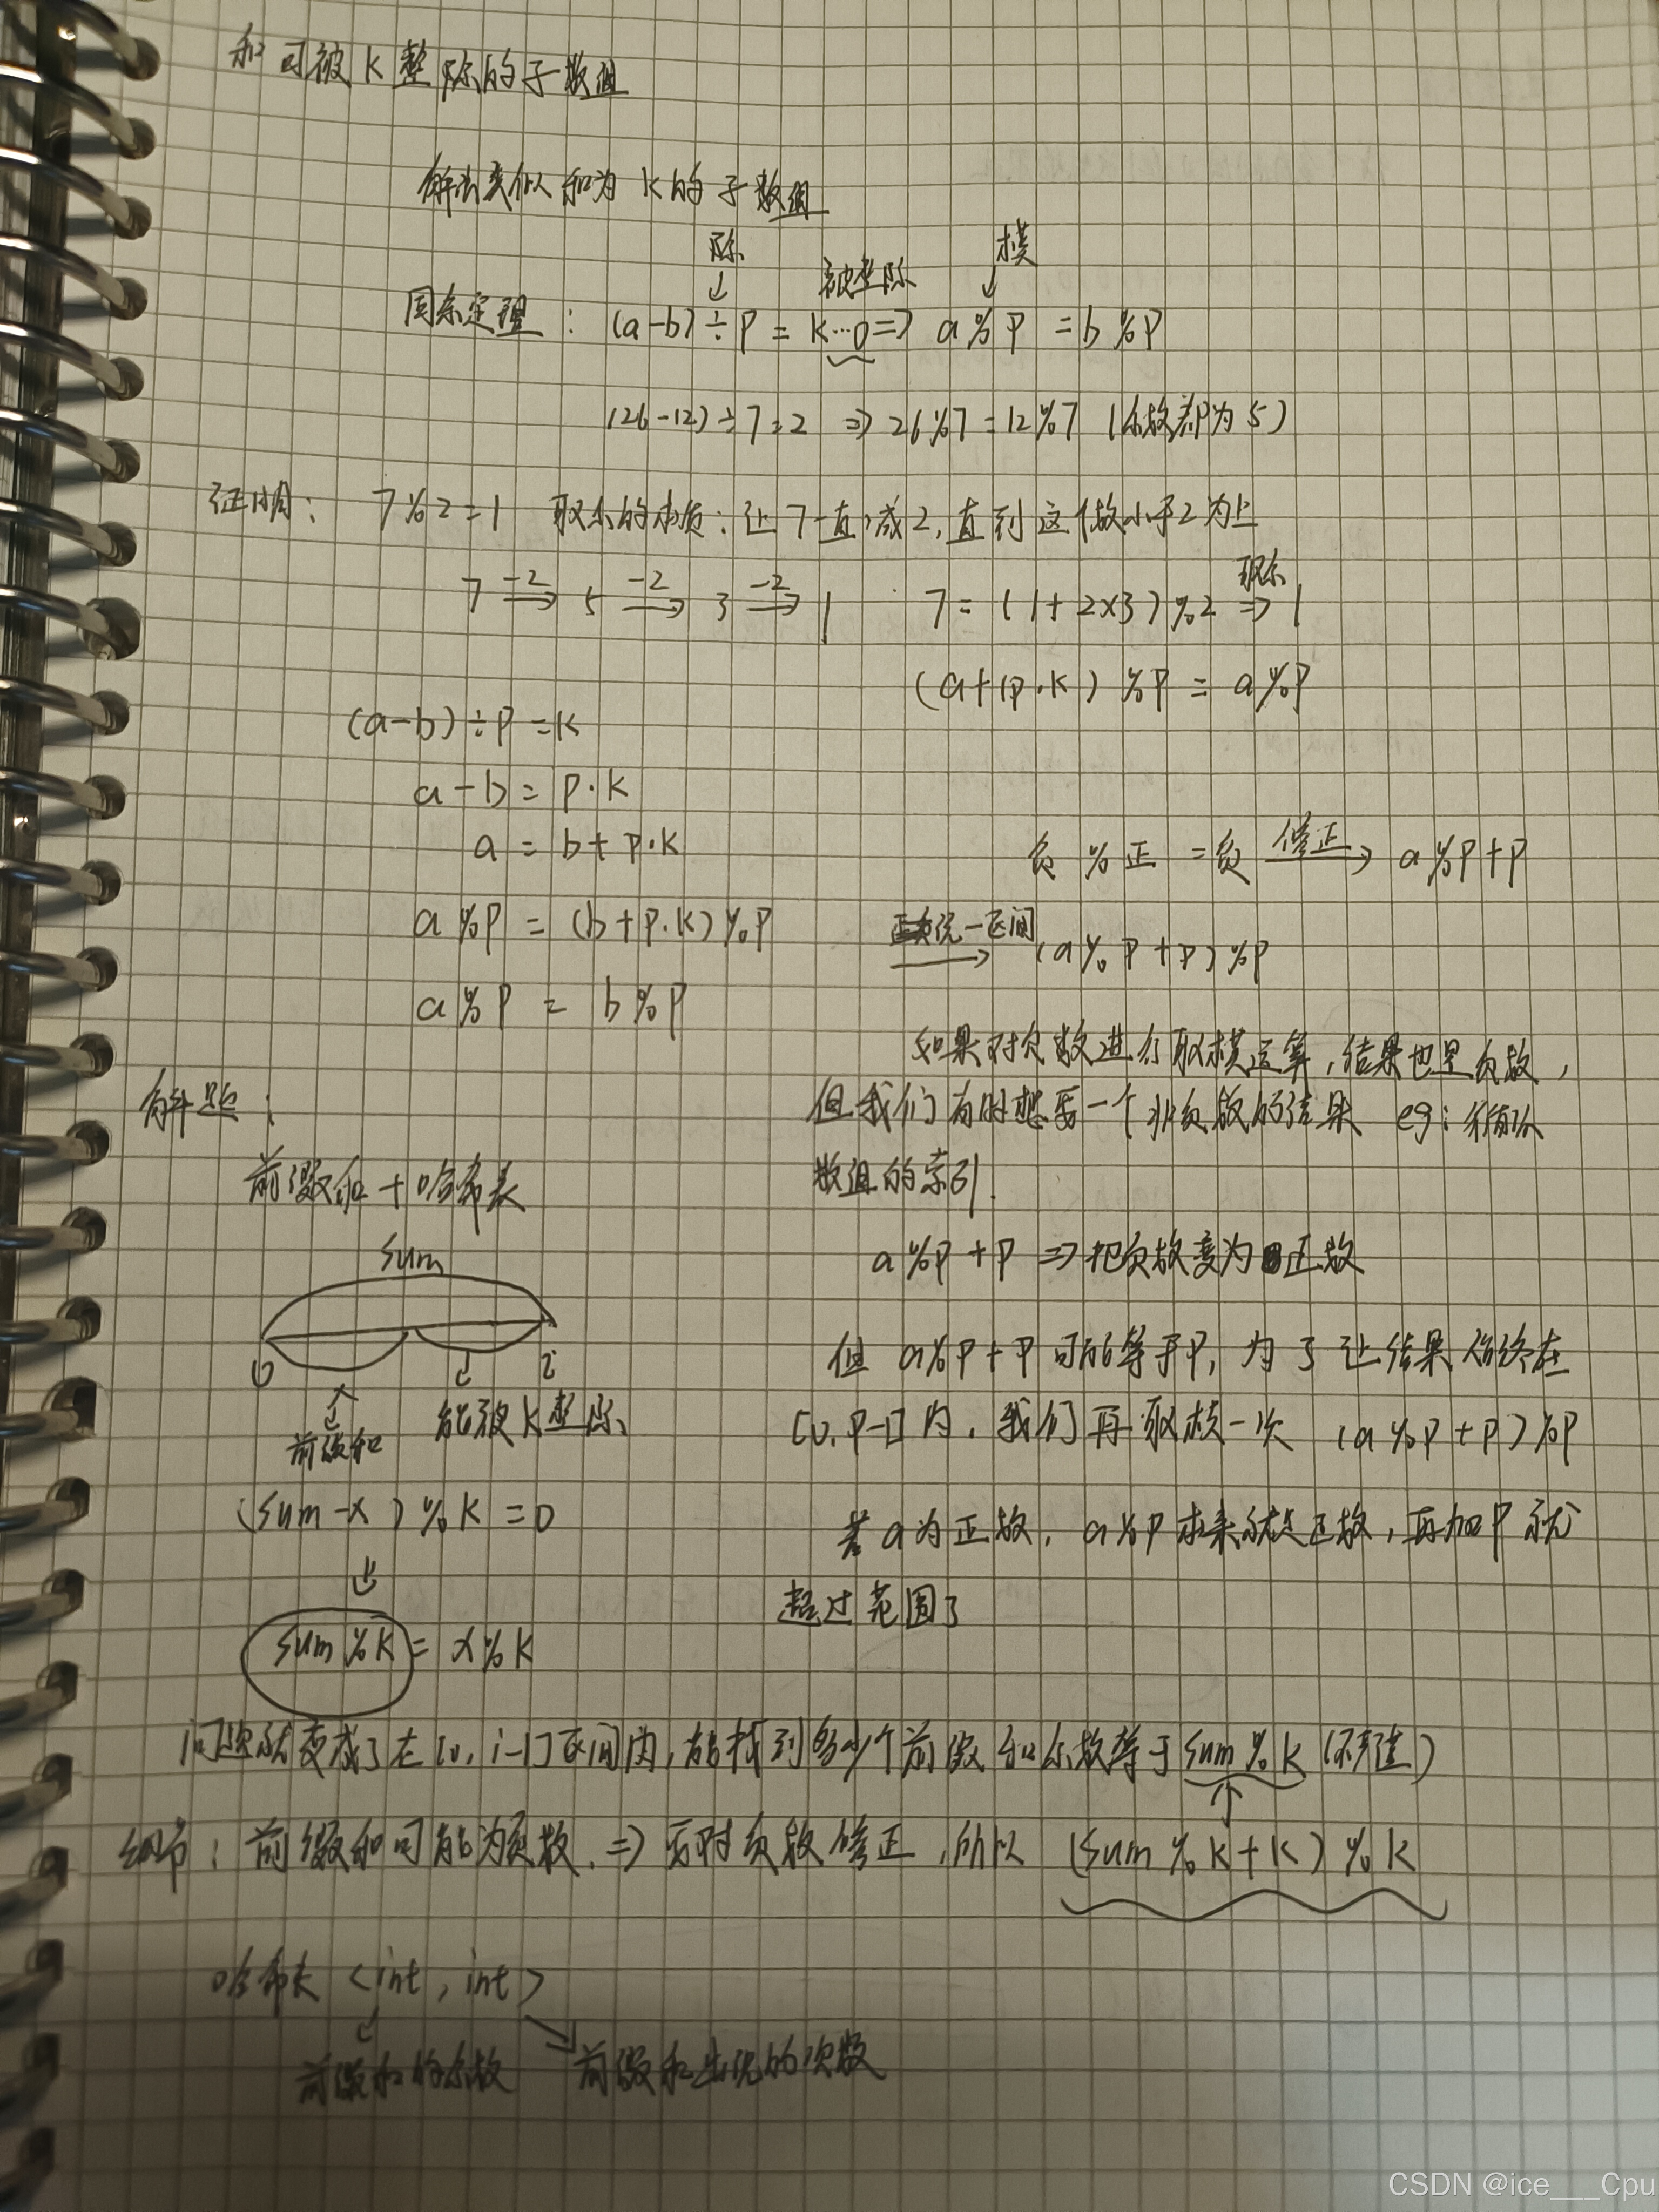 和可被K整除的子数组
解法类似和为K的子数组
除 被整除 模
同余定理：(a-b)÷P=K…0=>a%P=b%P
(26-12)÷7=2 => 26%7=12%7 (余数都为5)
证明： 7%2=1 取余的本质：让7一直减2，直到这个数小于2为止
7 -2→ 5 -2→ 3 -2→ 1 7=(1+2×3)%2 取余=> 1
(a+(p·K) %P = a%P
(a-b)÷P=K
a-b=P·K
a=b+P·K
a%P=(b+P·K)%P
a%P = b%P
负%正=负 修正→ a%P+P
正负统一区间→ (a%P+P)%P
如果对负数进行取模运算，结果也是负数，
但我们有时想要一个非负数的结果 eg：循环队
数组的索引.
a%P+P => 把负数变为正数
但 a%P+P 可能等于P，为了让结果始终在
[0,P-1]内，我们再取模一次 (a%P+P)%P
若a为正数，a%P本来就是正数，再加P就
超过范围了
解题：
前缀和+哈希表
sum
0 i
前缀和 能被K整除
(sum-x)%K=0
sum%K=x%K
问题就变成了在[0,i-1]区间内，能找到多少个前缀和余数等于sum%K
细节：前缀和可能为负数，=>要对负数修正，所以 (sum%K+K)%K
哈希表<int,int>
前缀和的余数 前缀和出现的次数
CSDN @ice___Cpu